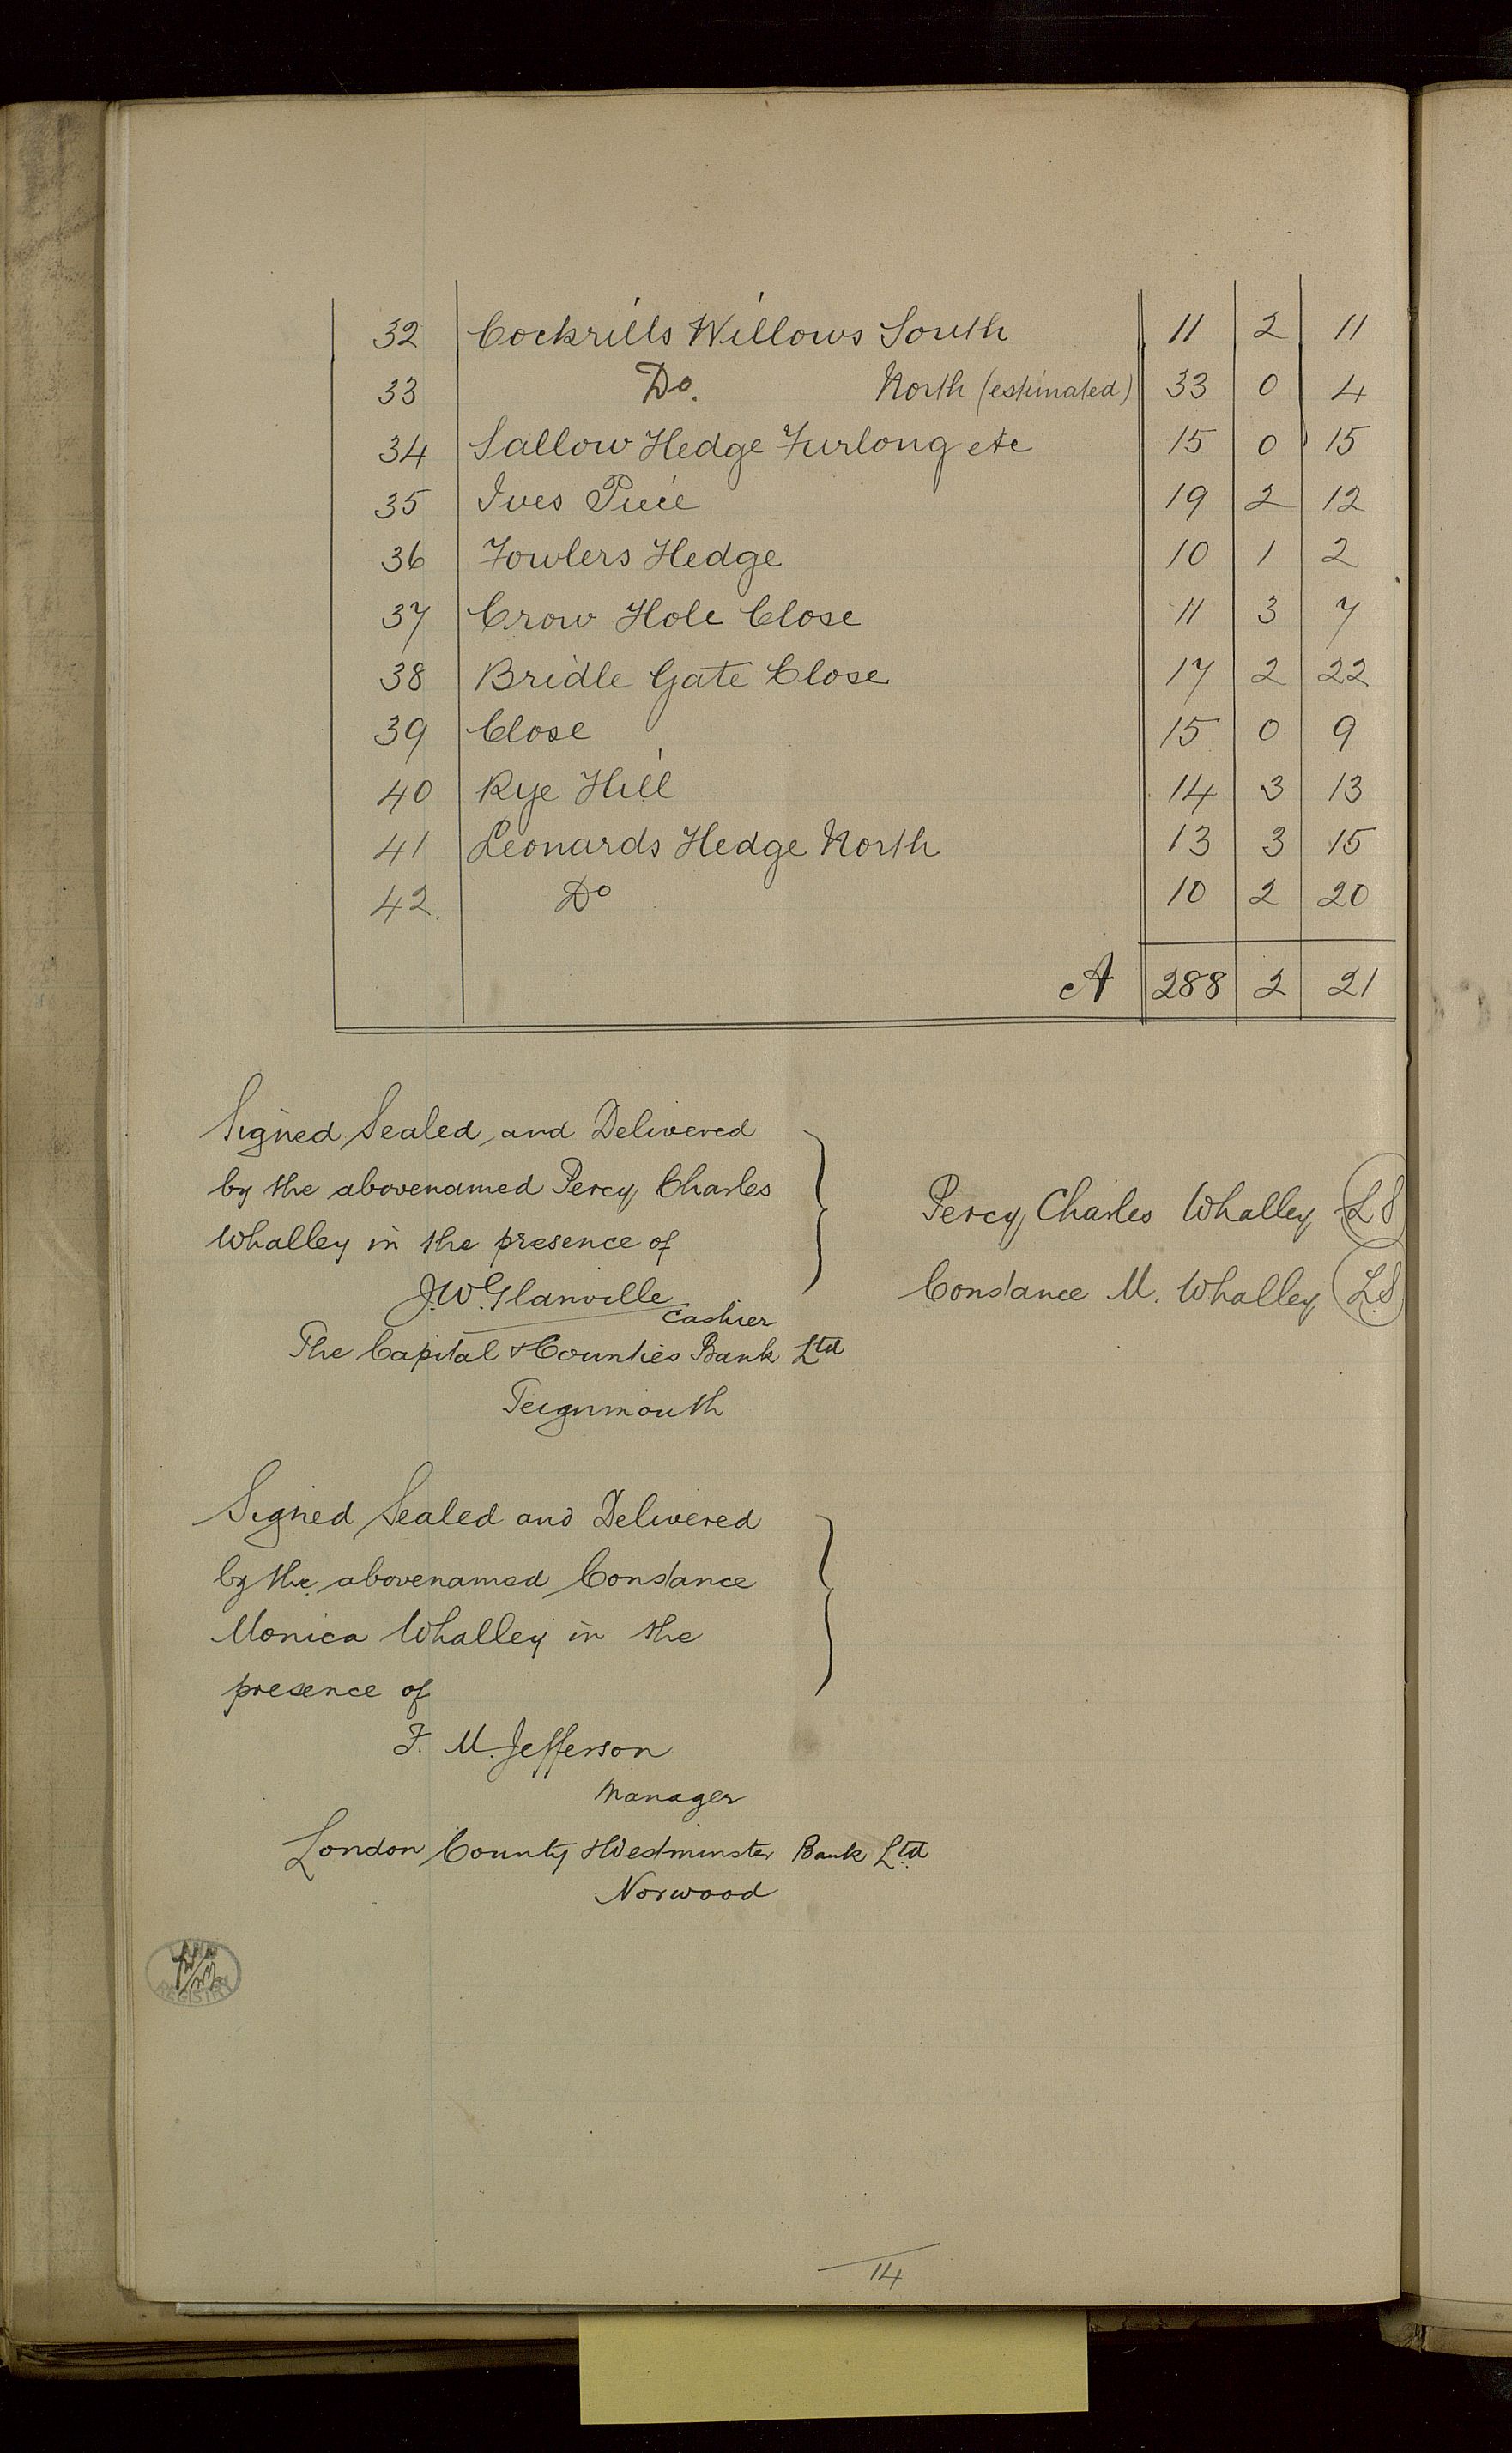 32 Cockrills Willows South 11 2 11
33 Do. North (estimated) 33 0 4
34 Sallow Hedge Furlong etc 15 0 15
35 Ives Piece 19 2 12
36 Fowlers Hedge 10 1 2
37 Crow Hole Close 11 3 7
38 Bridle Gate Close 17 2 22
39 Close 15 0 9
40 Rye Hill 14 3 13
41 Leonards Hedge North 13 3 15
42 Do 10 2 20
A 288 2 21
Signed Sealed and Delivered
by the abovenamed Percy Charles
Whalley in the presence of
J. W. Glanville
Cashier
The Capital & Counties Bank Ltd
Teignmouth
Percy Charles Whalley LS
Constance M. Whalley L.S
Signed Sealed and Delivered
by the abovenamed Constance
Monica Whalley in the
presence of
F. M. Jefferson
Manager
London County & Westminster Bank Ltd
Norwood
REGISTRY
14